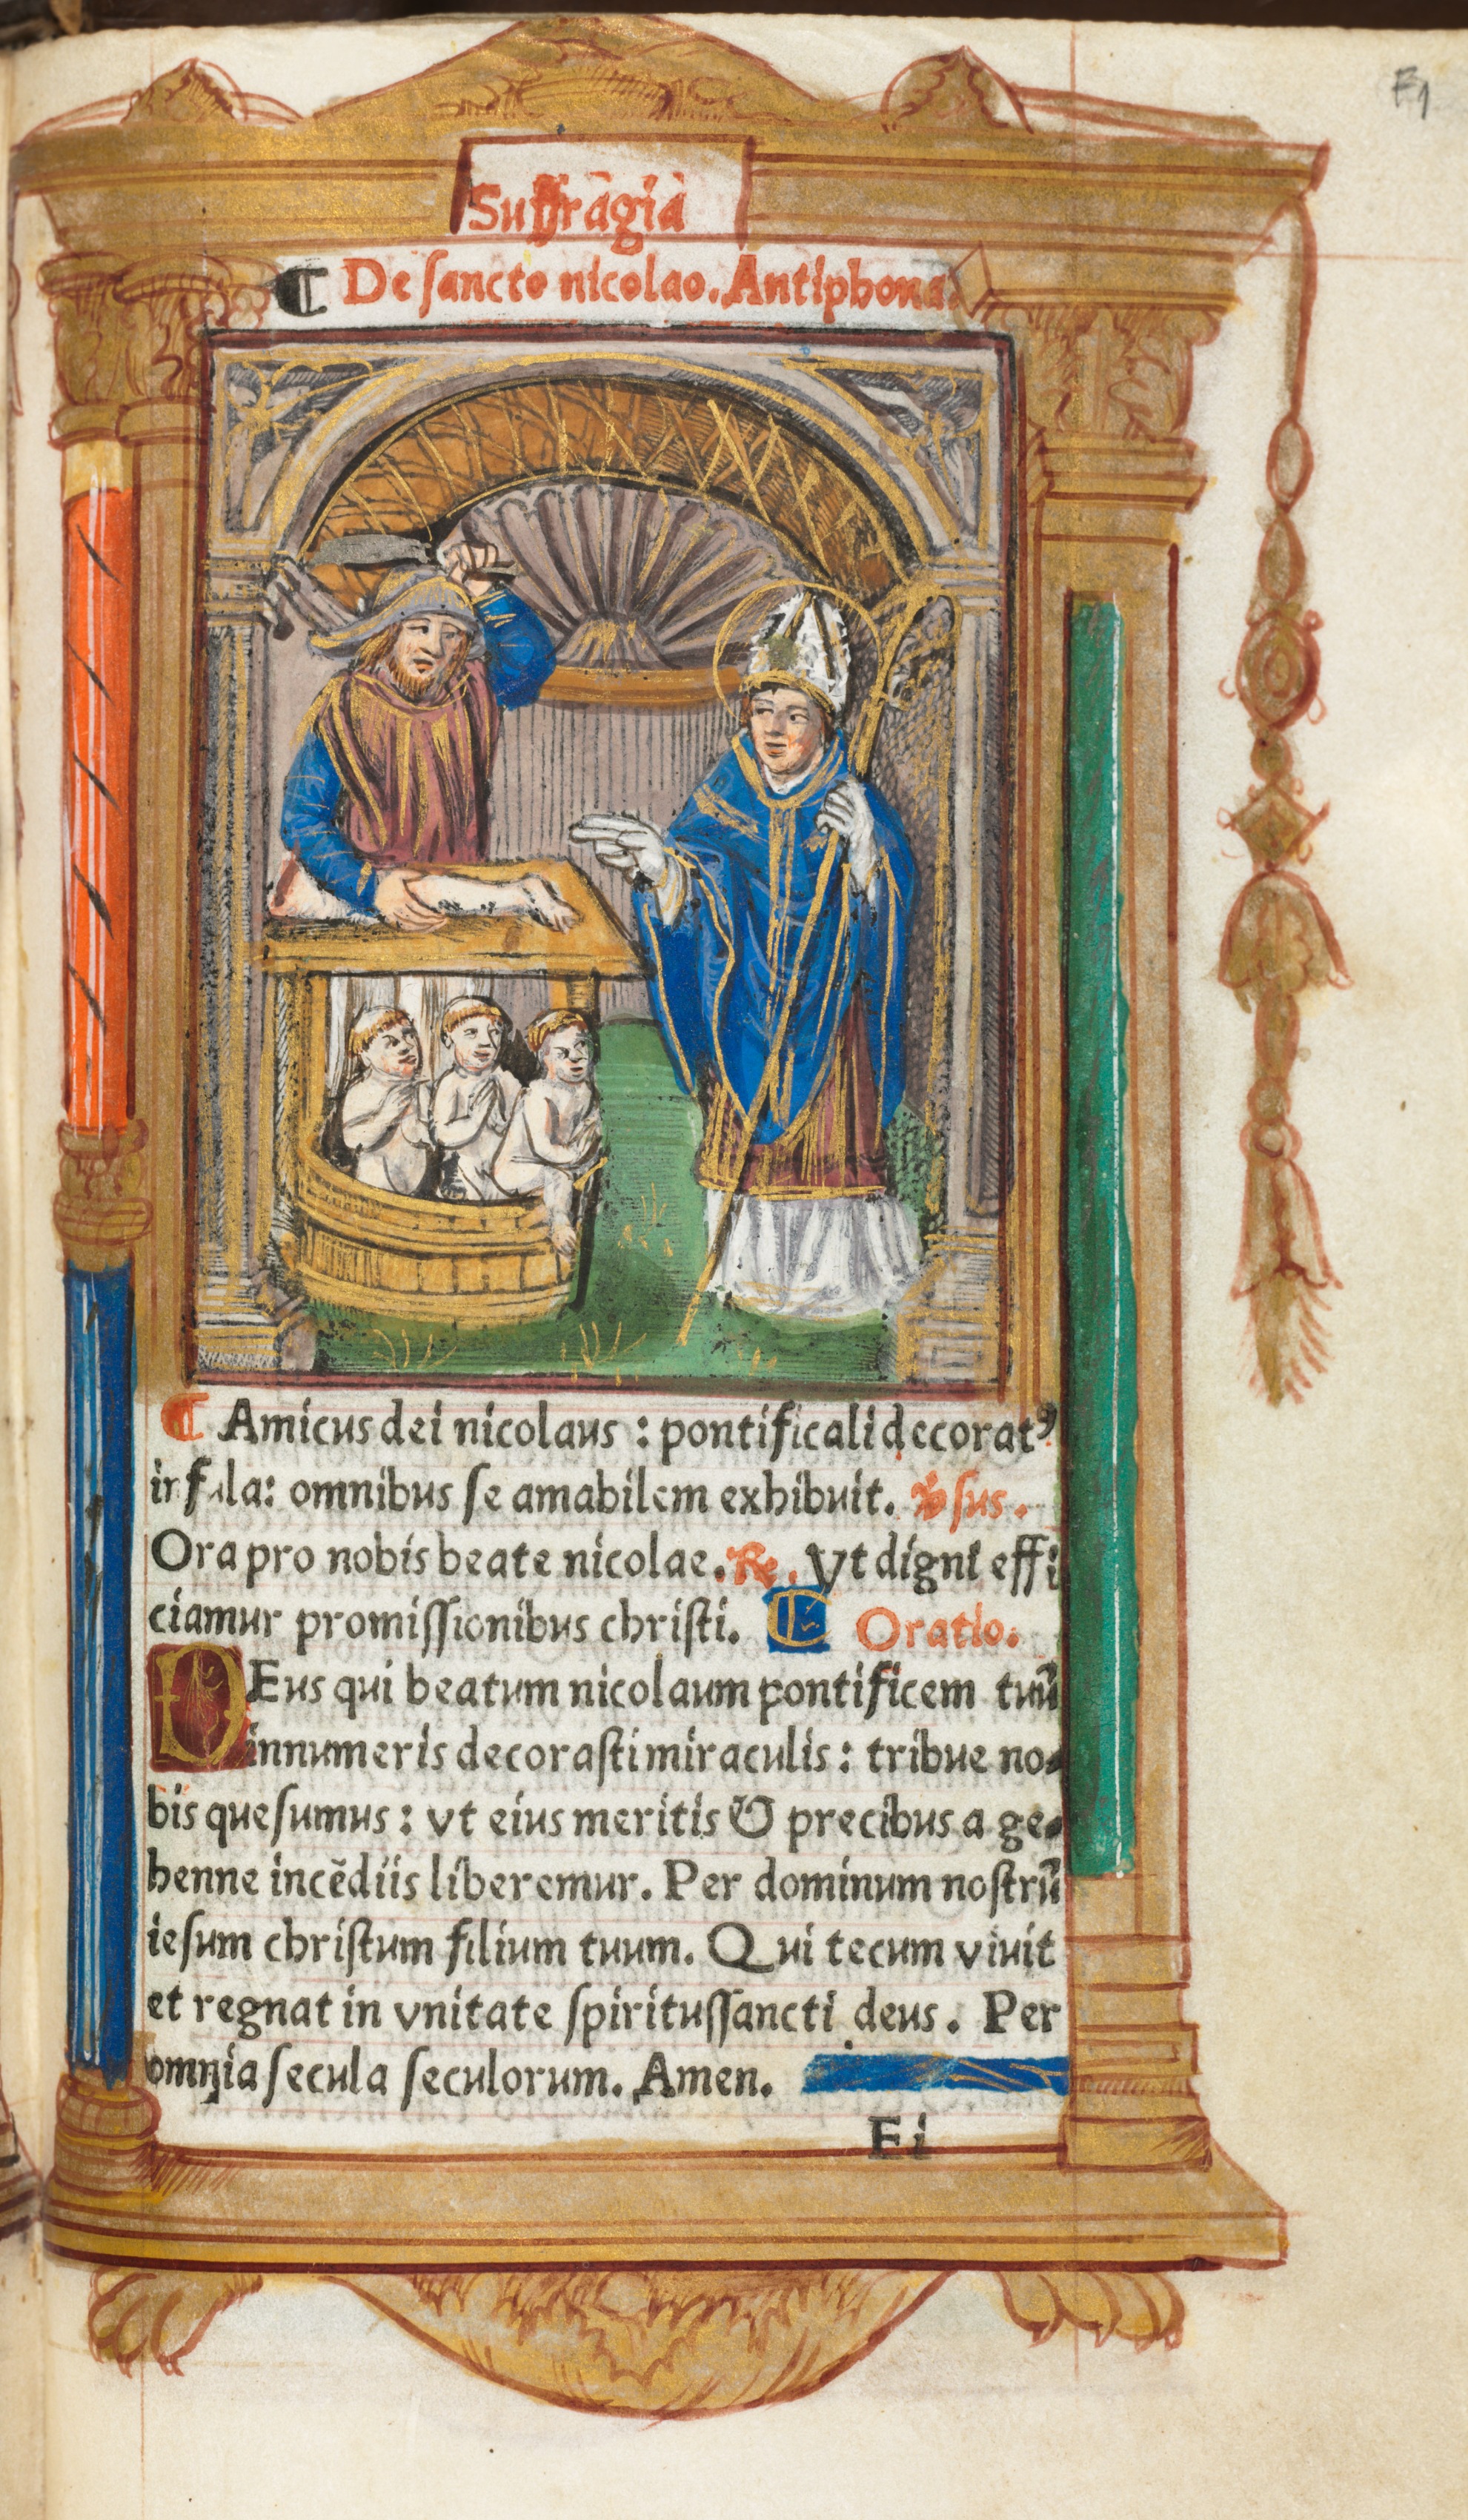 F1
Suffragia
¶ De sancto nicolao. Antiphona.
¶ Amicus dei nicolaus : pontificali decoratꝰ
infula: omnibus se amabilem exhibuit. ℣sus.
Ora pro nobis beate nicolae. ℞. Vt digni effi
ciamur promissionibus christi. ¶ Oratio.
DEus qui beatum nicolaum pontificem tuū
innumeris decorasti miraculis : tribue no-
bis quesumus : vt eius meritis & precibus a ge-
henne incēdiis liberemur. Per dominum nostrū
iesum christum filium tuum. Qui tecum viuit
et regnat in vnitate spiritussancti deus. Per
omnia secula seculorum. Amen.
F i